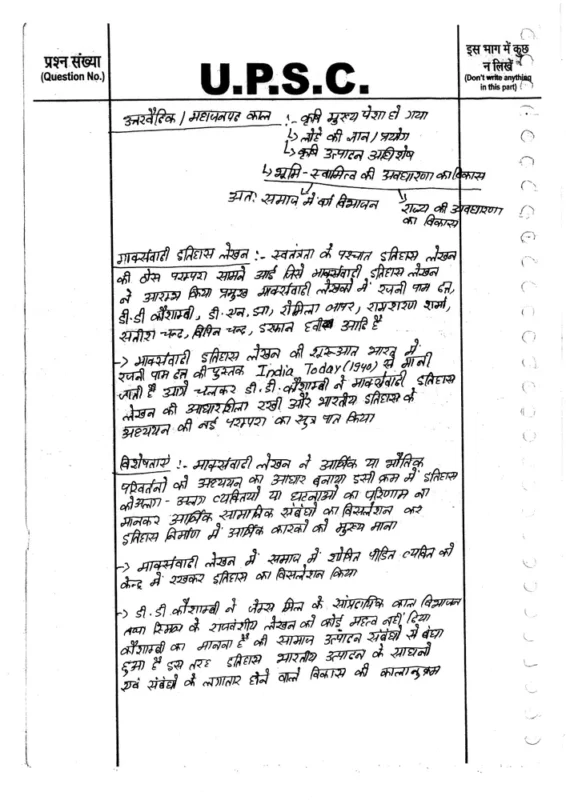 प्रश्न संख्या
(Question No.)
U.P.S.C.
इस भाग में कुछ
न लिखें
(Don't write anything
in this part)
उत्तरवैदिक / महाजनपद काल :- कृषि मुख्य पेशा हो गया
↳ लोहे की ज्ञान / प्रयोग
↳ कृषि उत्पादन अधिशेष
↳ भूमि - स्वामित्व की अवधारणा का विकास
अतः समाज में वर्ग विभाजन
राज्य की अवधारणा
का विकास
मार्क्सवादी इतिहास लेखन :- स्वतंत्रता के पश्चात इतिहास लेखन
की ठोस परम्परा सामने आई जिसे मार्क्सवादी इतिहास लेखन
ने आरम्भ किया प्रमुख मार्क्सवादी लेखकों में रजनी पाम दत्त,
डी.डी कौशाम्बी, डी. एन. झा, रोमिला थापर, रामशरण शर्मा,
सतीश चन्द्र, विपिन चन्द्र, इरफान हबीब आदि है
-> मार्क्सवादी इतिहास लेखन की शुरूआत भारत में
रजनी पाम दत्त की पुस्तक India Today (1940) से मानी
जाती है आगे चलकर डी. डी. कौशाम्बी ने मार्क्सवादी इतिहास
लेखन की आधारशिला रखी और भारतीय इतिहास के
अध्ययन की नई परम्परा का सूत्र पात किया
विशेषताएं :- मार्क्सवादी लेखन ने आर्थिक या भौतिक
परिवर्तनों को अध्ययन का आधार बनाया इसी क्रम में इतिहास
को अलग - अलग व्यक्तियों या घटनाओं का परिणाम ना
मानकर आर्थिक सामाजिक संबंधों का विसलेशन कर
इतिहास निर्माण में आर्थिक कारकों को मुख्य माना
-> मार्क्सवादी लेखन में समाज में शोषित पीडित व्यक्ति को
केन्द्र में रखकर इतिहास का विसलेशन किया
-> डी. डी. कौशाम्बी ने जेम्स मिल के सांप्रदायिक काल विभाजन
तथा स्मिथ के राजवंशीय लेखन को कोई महत्व नहीं दिया
कौशाम्बी का मानना है की सामाज उत्पादन संबंधों से बंधा
हुआ है इस तरह इतिहास भारतीय उत्पादन के साधनों
एवं संबंधों के लगातार होने वाले विकास की कालानुक्रम